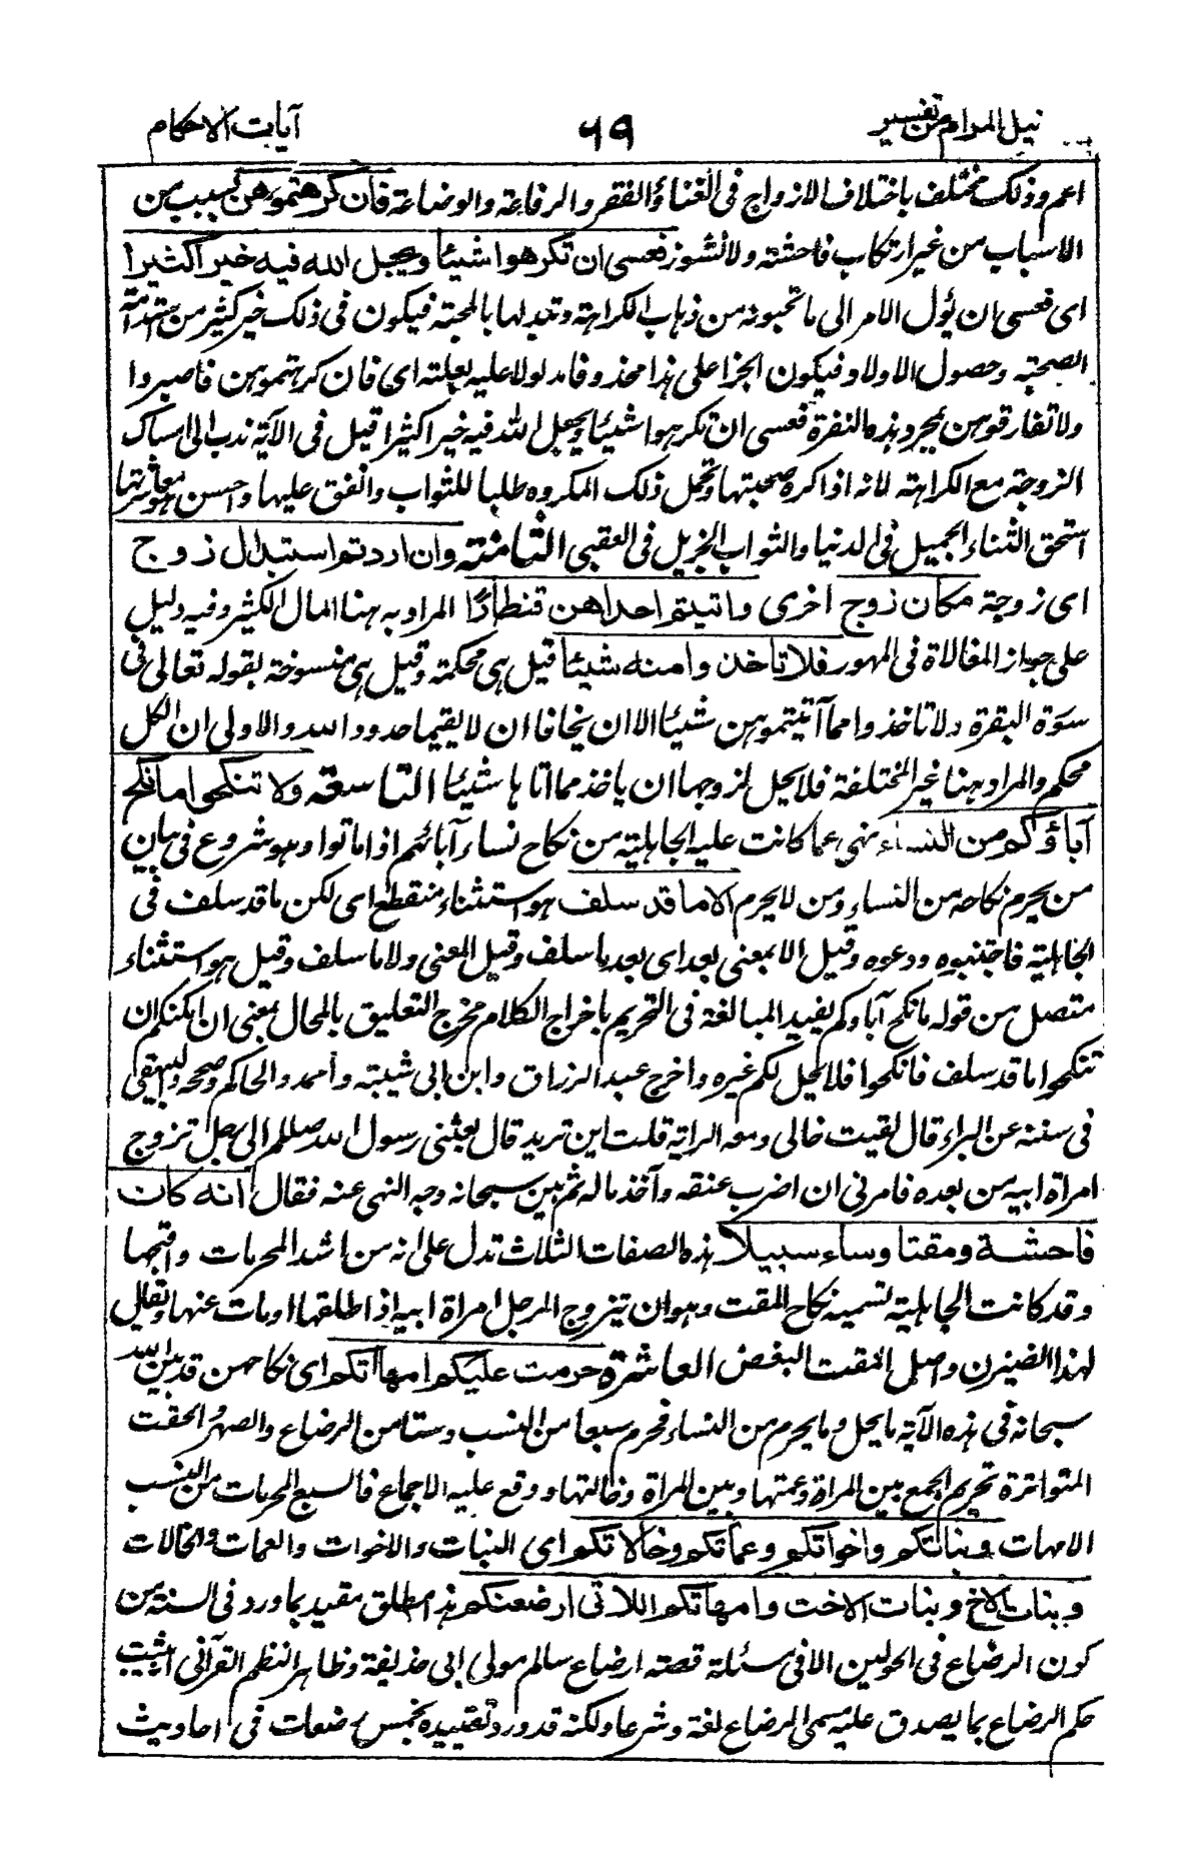 نيل المرام من تفسير ٦٩ آيات الاحكام
اعم وذلك مختلف باختلاف الازواج فى الغناء والفقر والرفاعة والوضاعة فان كرهتموهن بسبب من
الاسباب من غير ارتكاب فاحشة ولا نشوز فعسى ان تكرهوا شيئا ويجعل الله فيه خيرا كثيرا
اى فعسى ان يئول الامر الى ما تحبونه من ذهاب الكراهة وتبدلها بالمحبة فيكون فى ذلك خير كثير من استدامة
الصحبة وحصول الاولاد فيكون الجزاء على هذا محذوفا مدلولا عليه بعلته اى فان كرهتموهن فاصبروا
ولا تفارقوهن بمجرد هذه النفرة فعسى ان تكرهوا شيئا ويجعل الله فيه خيرا كثيرا قيل فى الآية ندب الى امساك
الزوجة مع الكراهة لانه اذا كره صحبتها وتحمل ذلك المكروه طلبا للثواب وانفق عليها واحسن هو معاشرتها
استحق الثناء الجميل فى الدنيا والثواب الجزيل فى العقبى الثامنة وان اردتم استبدال زوج
اى زوجة مكان زوج اخرى واتيتم احداهن قنطارا المراد به هنا المال الكثير وفيه دليل
على جواز المغالاة فى المهور فلا تاخذوا منه شيئا قيل هى محكمة وقيل هى منسوخة بقوله تعالى فى
سورة البقرة ولا تاخذوا مما آتيتموهن شيئا الا ان يخافا ان لا يقيما حدود الله والاولى ان الكل
محكم والمراد هنا غير المختلفة فلا يحل لزوجها ان ياخذ مما اتاها شيئا التاسعة ولا تنكحوا ما نكح
آباؤكم من النساء نهى عما كانت عليه الجاهلية من نكاح نساء آبائهم اذا ماتوا وهو شروع فى بيان
من يحرم نكاحه من النساء ومن لا يحرم الا ما قد سلف هو استثناء منقطع اى لكن ما قد سلف فى
الجاهلية فاجتنبوه ودعوه وقيل الا بمعنى بعد اى بعد ما سلف وقيل المعنى ولا ما سلف وقيل هو استثناء
متصل من قوله ما نكح آباؤكم يفيد المبالغة فى التحريم باخراج الكلام مخرج التعليق بالمحال بمعنى ان امكنكم ان
تنكحوا ما قد سلف فانكحوا فلا يحل لكم غيره واخرج عبد الرزاق وابن ابى شيبة واحمد والحاكم وصححه والبيهقى
فى سننه عن البراء قال لقيت خالى ومعه الراية قلت اين تريد قال بعثنى رسول الله صلعم الى رجل تزوج
امراة ابيه من بعده فامرنى ان اضرب عنقه وآخذ ماله ثم بين سبحانه وجه النهى عنه فقال انه كان
فاحشة ومقتا وساء سبيلا هذه الصفات الثلاث تدل على انه من اشد المحرمات واقبحها
وقد كانت الجاهلية تسميه نكاح المقت وهو ان يتزوج الرجل امراة ابيه اذا طلقها او مات عنها ويقال
لهذا الضيزن واصل المقت البغض العاشرة حرمت عليكم امهاتكم اى نكاحهن قد بين الله
سبحانه فى هذه الآية ما يحل وما يحرم من النساء فحرم سبعا من النسب وستا من الرضاع والصهر والحقت
المتواترة تحريم الجمع بين المراة وعمتها وبين المراة وخالتها ووقع عليه الاجماع فالسبع المحرمات من النسب
الامهات وبناتكم واخواتكم وعماتكم وخالاتكم اى البنات والاخوات والعمات والخالات
وبنات الاخ وبنات الاخت وامهاتكم اللاتى ارضعنكم هذا مطلق مقيد بما ورد فى السنة من
كون الرضاع فى الحولين الا فى مسئلة قصة ارضاع سالم مولى ابى حذيفة وظاهر النظم القرآنى انه يثبت
حكم الرضاع بما يصدق عليه مسمى الرضاع لغة وشرعا ولكنه قد ورد تقييده بخمس رضعات فى احاديث